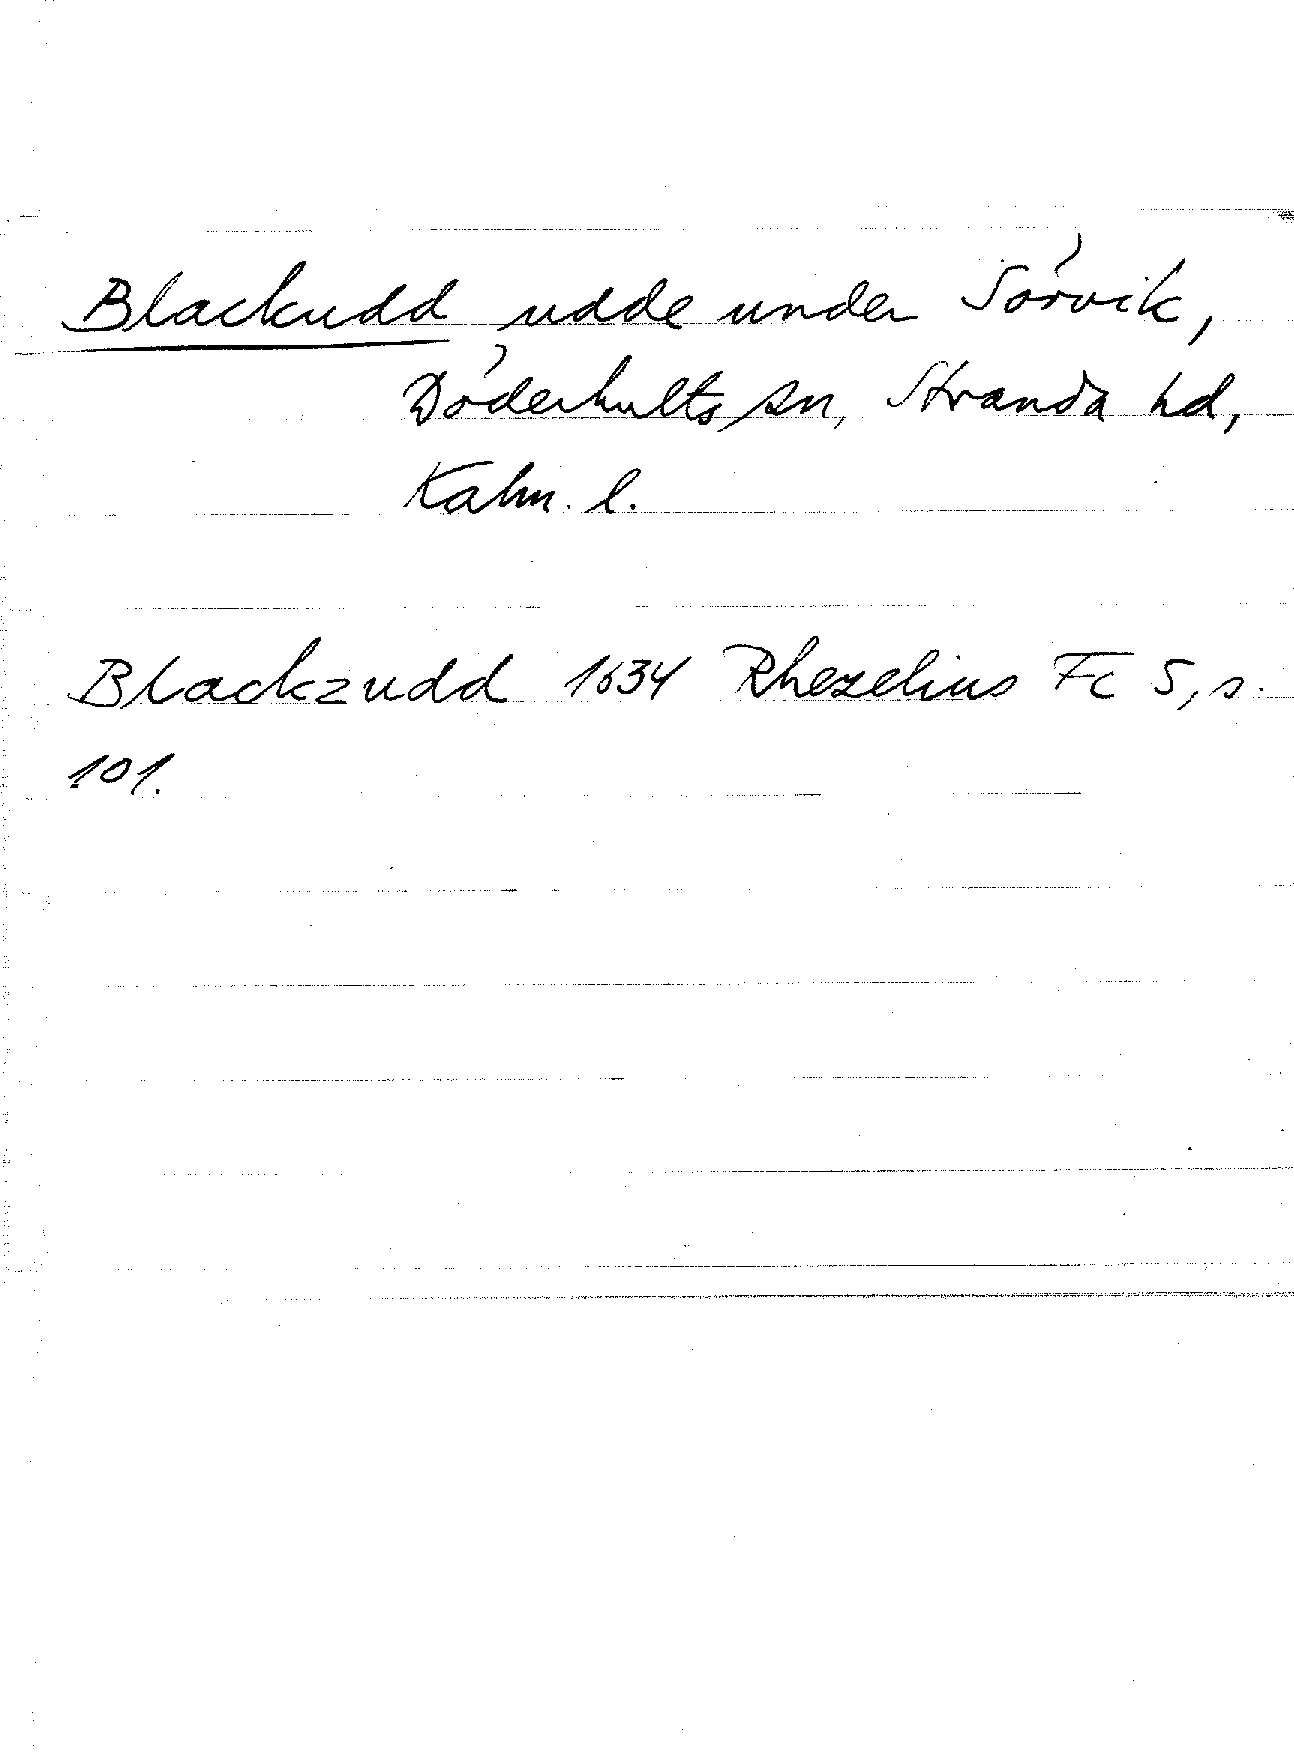 Blackudd udde under Sörvik,
Döderhults sn, Stranda hd,
Kalm. l.
Blackzudd 1634 Rhezelius Fc 5, s.
101.